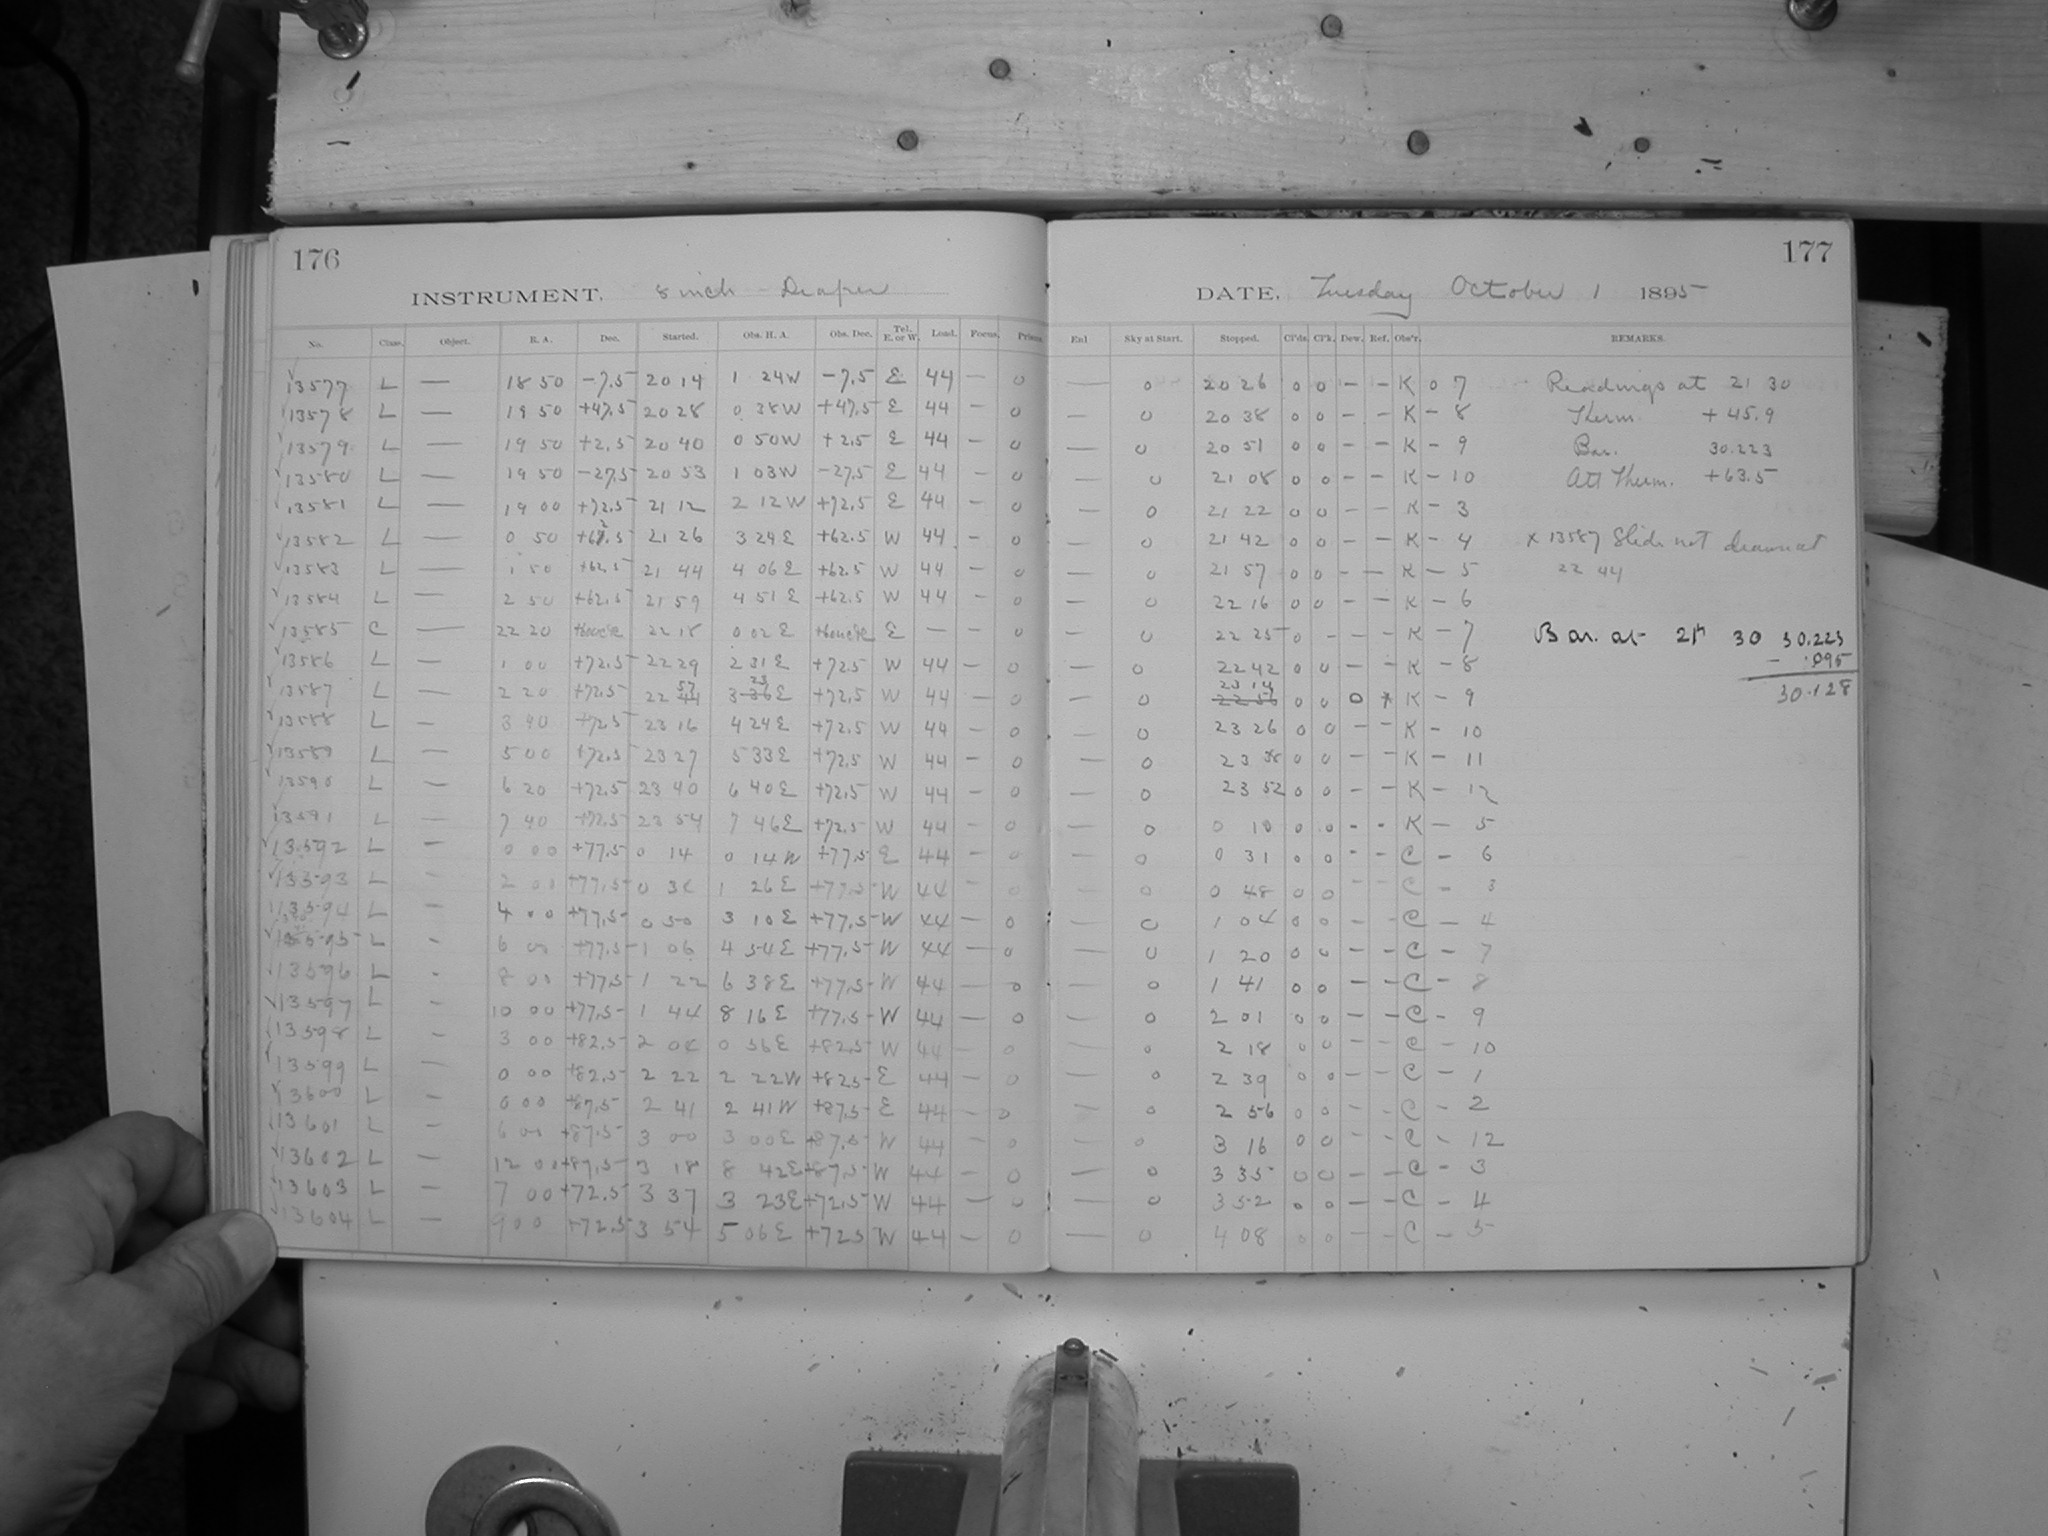 176
INSTRUMENT. 8 inch Draper
No. Class. Object. R. A. Dec. Started. Obs. H. A. Obs. Dec. Tel. E. or W. Load. Focus. Prism
13577 L — 18 50 -7.5 20 14 1 24W -7.5 E 44 — 0
13578 L — 19 50 +47.5 20 28 0 38W +47.5 E 44 — 0
13579 L — 19 50 +2.5 20 40 0 50W +2.5 E 44 — 0
13580 L — 19 50 -27.5 20 53 1 03W -27.5 E 44 — 0
13581 L — 19 00 +72.5 21 12 2 12W +72.5 E 44 — 0
13582 L — 0 50 +62.5 21 26 3 24E +62.5 W 44 — 0
13583 L — 1 50 +62.5 21 44 4 06E +62.5 W 44 — 0
13584 L — 2 50 +62.5 21 59 4 51E +62.5 W 44 — 0
13585 C — 22 20 22 18 0 02E E — — 0
13586 L — 1 00 +72.5 22 29 2 31E +72.5 W 44 — 0
13587 L — 2 20 +72.5 22 57 3 23E +72.5 W 44 — 0
13588 L — 3 40 +72.5 23 16 4 24E +72.5 W 44 — 0
13589 L — 5 00 +72.5 23 27 5 33E +72.5 W 44 — 0
13590 L — 6 20 +72.5 23 40 6 40E +72.5 W 44 — 0
13591 L — 7 40 +72.5 23 54 7 46E +72.5 W 44 — 0
13592 L — 0 00 +77.5 0 14 0 14W +77.5 E 44 — 0
13593 L — 2 00 +77.5 0 34 1 26E +77.5 W 44 — 0
13594 L — 4 00 +77.5 0 50 3 10E +77.5 W 44 — 0
13595 L — 6 00 +77.5 1 06 4 54E +77.5 W 44 — 0
13596 L — 8 00 +77.5 1 22 6 38E +77.5 W 44 — 0
13597 L — 10 00 +77.5 1 44 8 16E +77.5 W 44 — 0
13598 L — 3 00 +82.5 2 04 0 56E +82.5 W 44 — 0
13599 L — 0 00 +82.5 2 22 2 22W +82.5 E 44 — 0
13600 L — 0 00 +87.5 2 41 2 41W +87.5 E 44 — 0
13601 L — 6 00 +87.5 3 00 3 00E +87.5 W 44 — 0
13602 L — 12 00 +87.5 3 18 8 42E +87.5 W 44 — 0
13603 L — 7 00 +72.5 3 37 3 23E +72.5 W 44 — 0
13604 L — 9 00 +72.5 3 54 5 06E +72.5 W 44 — 0
177
DATE. Tuesday October 1 1895
Enl Sky at Start. Stopped. Cl'ds. Cl'k. Dew. Ref. Obs'r. REMARKS.
— 0 20 26 0 0 — — K 0 7 Readings at 21 30
— 0 20 38 0 0 — — K — 8 Therm. + 45.9
— 0 20 51 0 0 — — K — 9 Bar. 30.223
0 21 08 0 0 — — K — 10 Att Therm. +63.5
— 0 21 22 0 0 — — K — 3
— 0 21 42 0 0 — — K — 4 x 13587 Slide not drawn at
— 0 21 57 0 0 — — K — 5 22 44
— 0 22 16 0 0 — — K — 6
— 0 22 25 0 — — — K — 7 Bar. at 21h 30 30.223
— 0 22 42 0 0 — — K — 8 — .095
— 0 23 14 0 0 0 * K — 9 30.128
— 0 23 26 0 0 — — K — 10
— 0 23 38 0 0 — — K — 11
— 0 23 52 0 0 — — K — 12
— 0 0 10 0 0 — — K — 5
— 0 0 31 0 0 — — C — 6
— 0 0 48 0 0 — — C — 3
— 0 1 04 0 0 — — C — 4
— 0 1 20 0 0 — — C — 7
— 0 1 41 0 0 — — C — 8
— 0 2 01 0 0 — — C — 9
— 0 2 18 0 0 — — C — 10
— 0 2 39 0 0 — — C — 1
— 0 2 56 0 0 — — C — 2
— 0 3 16 0 0 — — C — 12
— 0 3 35 0 0 — — C — 3
— 0 3 52 0 0 — — C — 4
— 0 4 08 0 0 — — C — 5